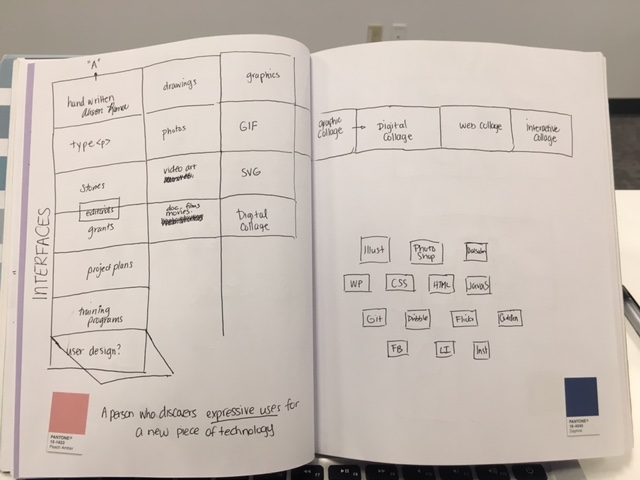 "A"
hand written
drawings
graphics
type <p>
photos
GIF
stories
video art
SVG
editorials
grants
doc, films
movies
Digital
Collage
project plans
training
programs
user design?
INTERFACES
A person who discovers expressive uses for
a new piece of technology
PANTONE®
Peach Amber
graphic
collage
Digital
Collage
web collage
interactive
collage
Illust
Photo
Shop
WP
CSS
HTML
JavaS
Git
Dribble
Flickr
FB
LI
Inst
PANTONE®
F7
F8
F9
F10